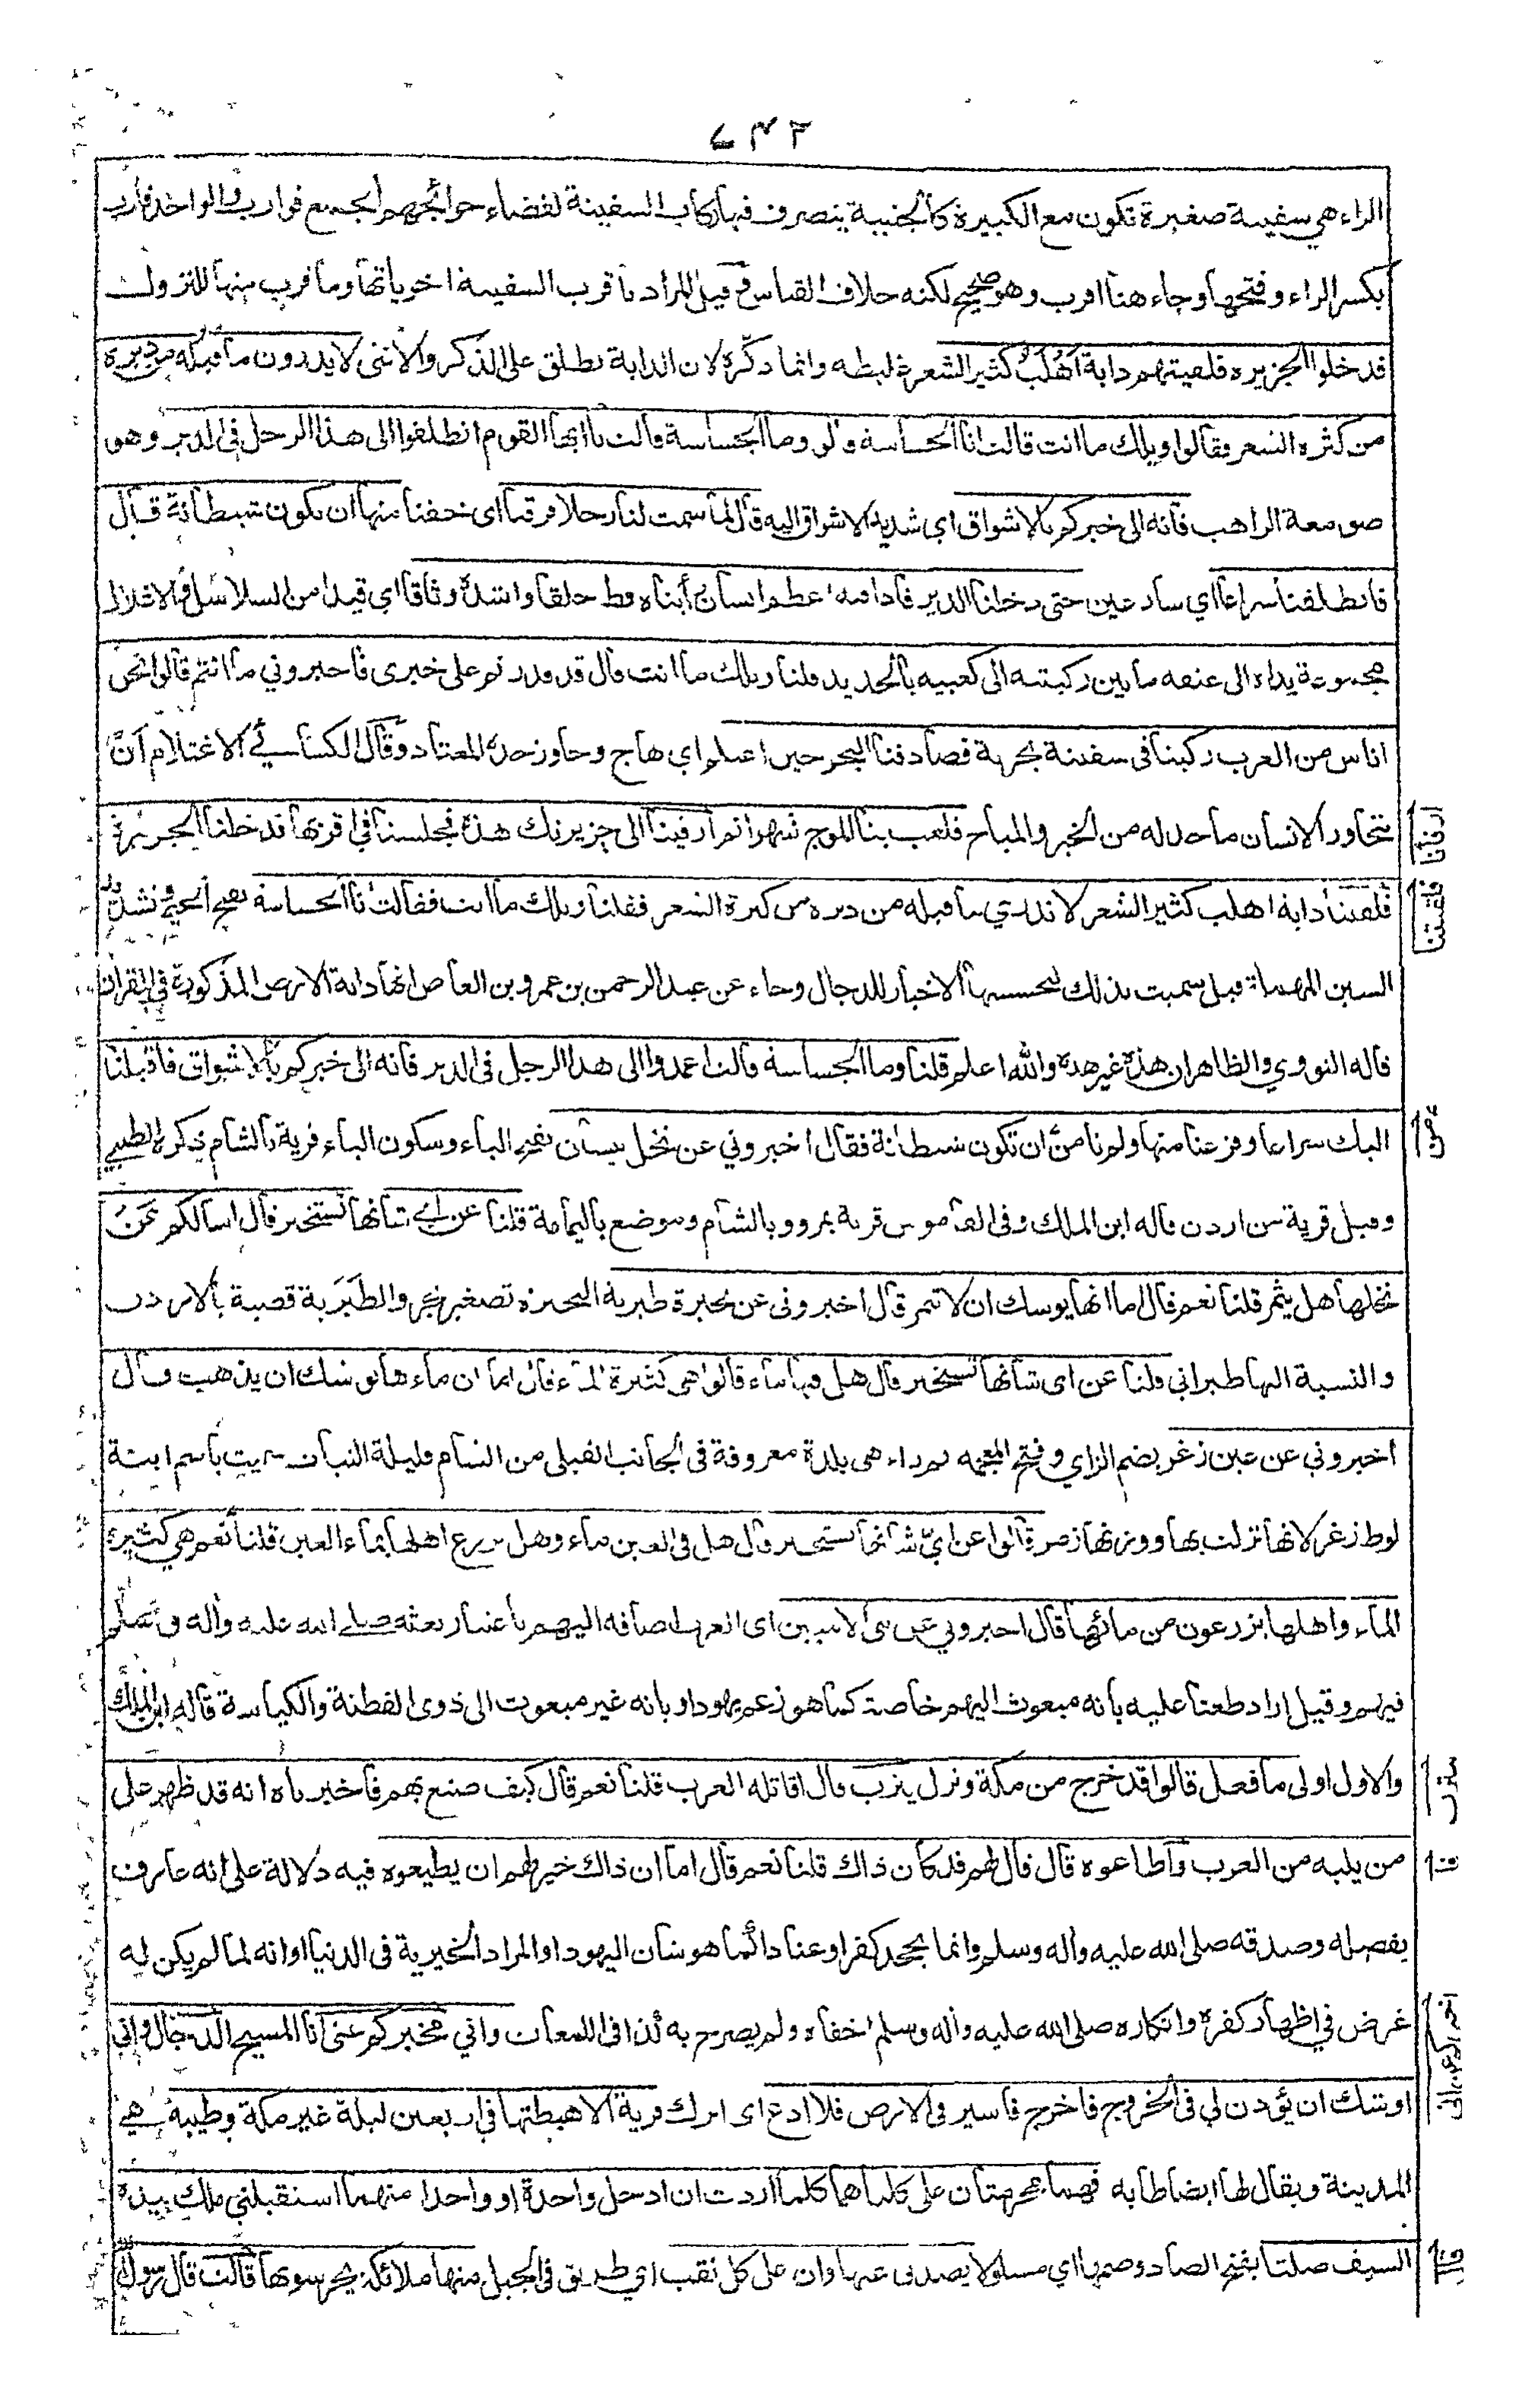 ٤٣٢
الراء هي سفينة صغيرة تكون مع الكبيرة كالجنيبة يتصرف فيها ركاب السفينة لقضاء حوائجهم الجمع قوارب والواحد قارب
بكسر الراء وفتحها وجاء هنا اقرب وهو صحيح لكنه خلاف القياس وقيل المراد باقرب السفينة اخرياتها وما قرب منها للنزول
فدخلوا الجزيرة فلقيتهم دابة اهلب كثير الشعر غليظه وانما ذكّره لان الدابة يطلق على الذكر والأنثى لا يدرون ما قبله من دبره
من كثرة الشعر فقالوا ويلك ما انت قالت انا الجساسة قالوا وما الجساسة قالت يا ايها القوم انطلقوا الى هذا الرجل في الدير وهو
صومعة الراهب فانه الى خبركم بالاشواق اي شديد الاشواق اليه قال لما سمت لنا رجلا فرقنا اى خفنا منها ان تكون شيطانة قال
فانطلقنا سراعا اي سارعين حتى دخلنا الدير فاذا فيه اعظم انسان رأيناه قط خلقا واشده وثاقا اي قيدا من السلاسل والاغلال
مجموعة يداه الى عنقه ما بين ركبتيه الى كعبيه بالحديد قلنا ويلك ما انت قال قد قدرتم على خبرى فاخبروني ما انتم قالوا نحن
اناس من العرب ركبنا في سفينة بحرية فصادفنا البحر حين اغتلم اي هاج وجاوز حده المعتاد وقال الكسائي الاغتلام ان
يتجاوز الانسان ما حد له من الخير والمباح فلعب بنا الموج شهرا ثم ارفينا الى جزيرتك هذه فجلسنا في اقربها فدخلنا الجزيرة
ارفأنا
فلقينا دابة اهلب كثير الشعر لا ندري ما قبله من دبره من كثرة الشعر فقلنا ويلك ما انت فقالت انا الجساسة بفتح الجيم وتشديد
فلقيتنا
السين المهملة قيل سميت بذلك لتجسسها الاخبار للدجال وجاء عن عبد الرحمن بن عمرو بن العاص انها دابة الارض المذكورة في القران
قاله النووي والظاهر ان هذه غير هذه والله اعلم قلنا وما الجساسة قالت اعمدوا الى هذا الرجل في الدير فانه الى خبركم بالاشواق فاقبلنا
اليك سراعا وفزعنا منها ولم نامن ان تكون شيطانة فقال اخبروني عن نخل بيسان بفتح الباء وسكون الياء قرية بالشام ذكره الطيبي
وقيل قرية من اردن قاله ابن الملك وفي القاموس قرية بمرو وبالشام وموضع باليمامة قلنا عن اي شأنها تستخبر قال اسالكم عن
نخلها هل يثمر قلنا نعم قال اما انها يوشك ان لا تثمر قال اخبروني عن بحيرة طبرية البحيرة تصغير بحر والطبرية قصبة بالاردن
والنسبة اليها طبراني قلنا عن اى شأنها تستخبر قال هل فيها ماء قالوا هي كثيرة الماء قال اما ان ماءها يوشك ان يذهب قال
اخبروني عن عين زغر بضم الزاي وفتح المعجمة ثم راء هي بلدة معروفة في الجانب القبلي من الشام قليلة النبات سميت باسم ابنة
لوط زغر لانها نزلت بها ووزنها زصر قالوا عن ايّ شأنها تستخبر قال هل في العين ماء وهل يزرع اهلها بماء العين قلنا نعم هي كثيرة
الماء واهلها يزرعون من مائها قال اخبروني عن نبي الاميين اى العرب اضافه اليهم باعتبار بعثه صلى الله عليه وآله وسلم
فيهم وقيل اراد طعنا عليه بانه مبعوث اليهم خاصة كما هو زعم يهود او بانه غير مبعوث الى ذوى الفطنة والكياسة قاله ابن الملك
والاول اولى ما فعل قالوا قد خرج من مكة ونزل يثرب قال اقاتله العرب قلنا نعم قال كيف صنع بهم فاخبرناه انه قد ظهر على
من يليه من العرب واطاعوه قال قال لهم قد كان ذاك قلنا نعم قال اما ان ذاك خير لهم ان يطيعوه فيه دلالة على انه عارف
بفضله وصدقه صلى الله عليه وآله وسلم وانما يجحد كفرا وعنادا كما هو شان اليهود او المراد الخيرية في الدنيا او انه لما لم يكن له
غرض في اظهار كفره وانكاره صلى الله عليه وآله وسلم اخفاه ولم يصرح به كذا في اللمعات واني مخبركم عنى انا المسيح الدجال واني
اوشك ان يؤذن لي في الخروج فاخرج فاسير في الارض فلا ادع اى اترك قرية الا هبطتها في اربعين ليلة غير مكة وطيبة هي
المدينة ويقال لها ايضا طابه فهما محرمتان على كلتاهما كلما اردت ان ادخل واحدة او واحدا منهما استقبلني ملك بيده
السيف صلتا بفتح الصاد وضمها اي مسلولا يصدنى عنها وان على كل نقب اي طريق في الجبل منها ملائكة يحرسونها قالت قال رسول الله